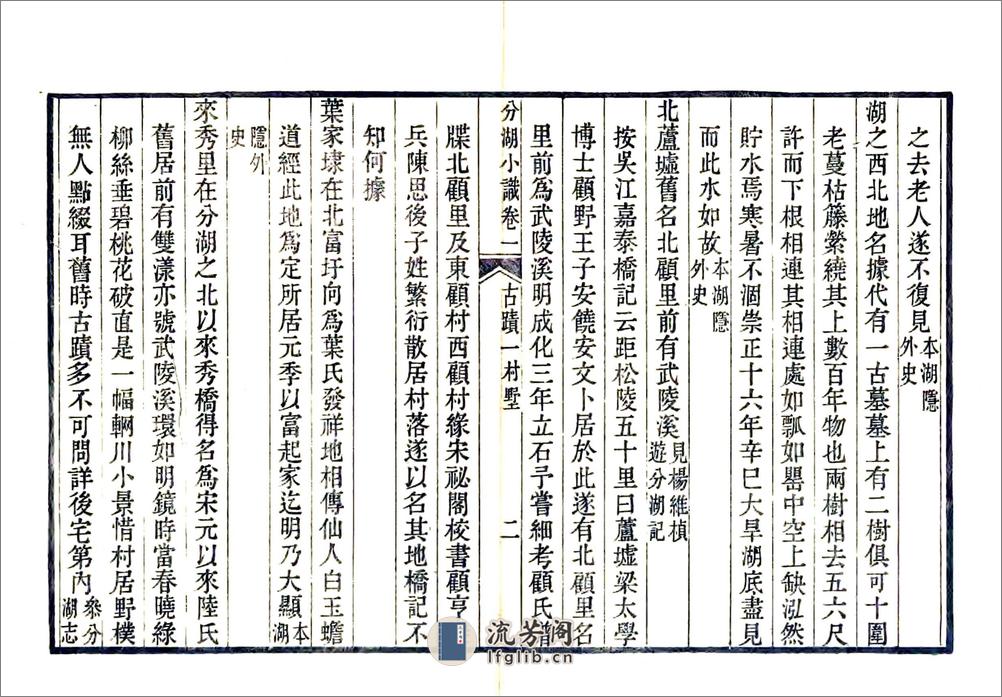 之去老人遂不復見本湖隱外史
湖之西北地名據代有一古墓墓上有二樹俱可十圍
老蔓枯藤縈繞其上數百年物也兩樹相去五六尺
許而下根相連其相連處如瓢如罌中空上缺泓然
貯水焉寒暑不涸崇正十六年辛巳大旱湖底盡見
而此水如故本湖隱外史
北蘆墟舊名北顧里前有武陵溪見楊維楨遊分湖記
按吳江嘉泰橋記云距松陵五十里曰蘆墟梁太學
博士顧野王子安饒安文卜居於此遂有北顧里名
里前爲武陵溪明成化三年立石予嘗細考顧氏譜
分湖小識卷一 古蹟一村墅 二
牒北顧里及東顧村西顧村緣宋祕閣校書顧亨
兵陳思後子姓繁衍散居村落遂以名其地橋記不
知何據
葉家埭在北富圩向爲葉氏發祥地相傳仙人白玉蟾
道經此地爲定所居元季以富起家迄明乃大顯本湖隱外史
來秀里在分湖之北以來秀橋得名爲宋元以來陸氏
舊居前有雙漾亦號武陵溪環如明鏡時當春曉綠
柳絲垂碧桃花破直是一幅輞川小景惜村居野樸
無人點綴耳舊時古蹟多不可問詳後宅第內叅分湖志
流芳閣
lfglib.cn